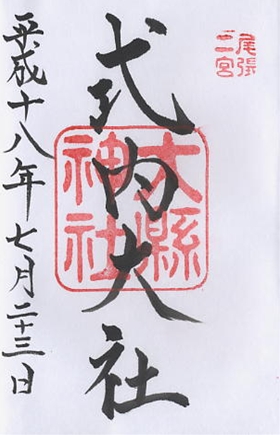 尾張
二宮
式内大社
大縣
神社
平成十八年七月二十三日